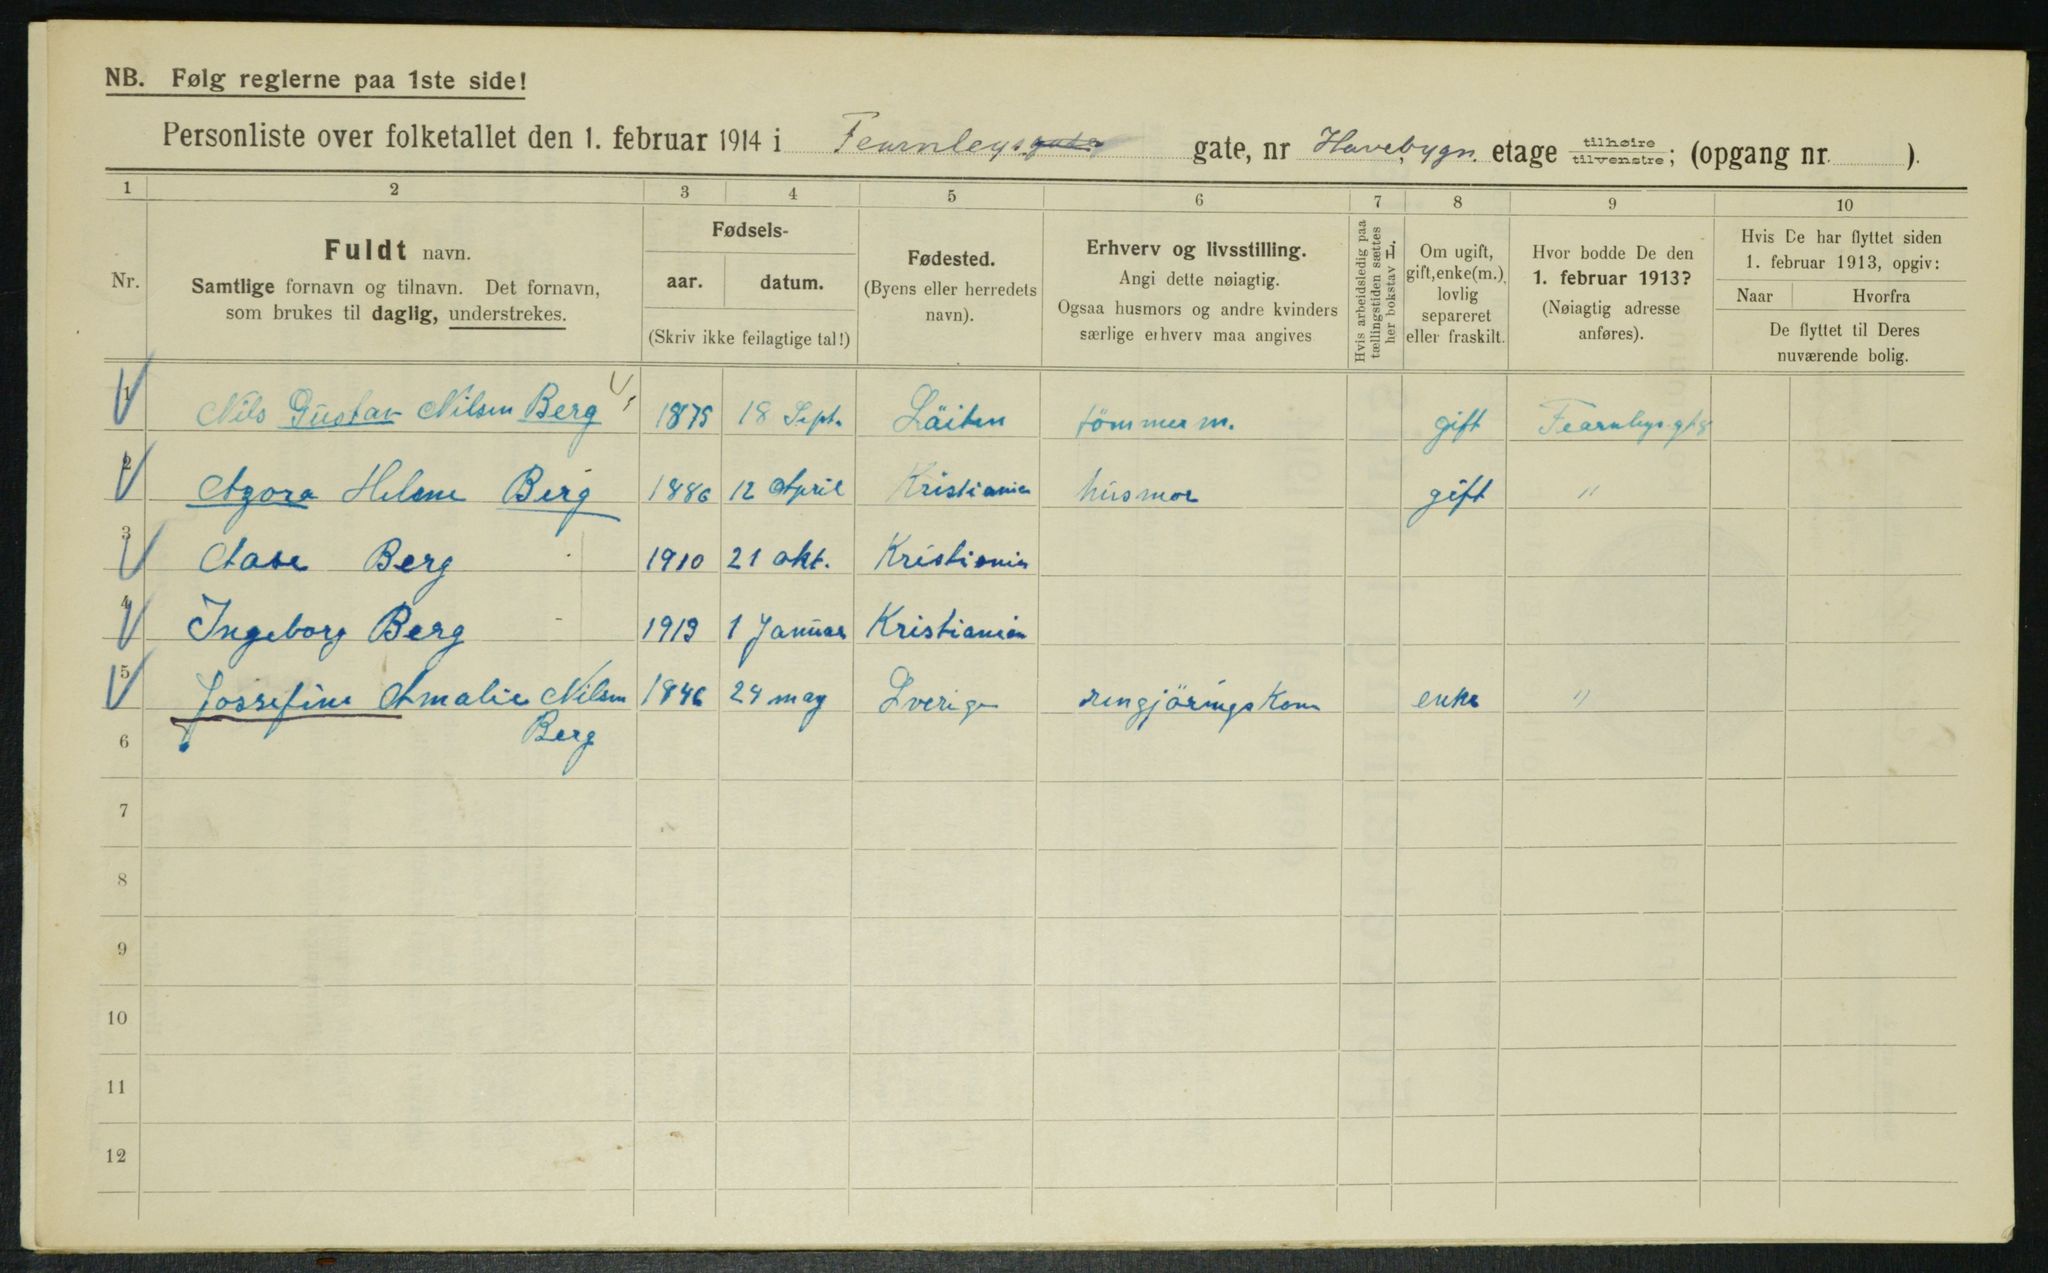 NB. Følg reglerne paa 1ste side!
Personliste over folketallet den 1. februar 1914 i Fearnleys gate, nr Havebygn. etage tilhøire tilvenstre; (opgang nr. ).
1 2 3 4 5 6 7 8 9 10
Nr.
Fuldt navn.
Samtlige fornavn og tilnavn. Det fornavn,
som brukes til daglig, understrekes.
Fødsels-
aar. datum.
(Skriv ikke feilagtige tal!)
Fødested.
(Byens eller herredets
navn).
Erhverv og livsstilling.
Angi dette nøiagtig.
Ogsaa husmors og andre kvinders
særlige erhverv maa angives
Hvis arbeidsledig paa
tællingstiden sættes
her bokstav L.
Om ugift,
gift, enke(m.),
lovlig
separeret
eller fraskilt.
Hvor bodde De den
1. februar 1913?
(Nøiagtig adresse
anføres).
Hvis De har flyttet siden
1. februar 1913, opgiv:
Naar Hvorfra
De flyttet til Deres
nuværende bolig.
1 Nils Gustav Nilsen Berg 1875 18 Sept. Löiten tömmerm. gift Fearnleysgt 8
2 Agora Helene Berg 1886 12 April Kristiania husmor gift "
3 Aase Berg 1910 21 okt. Kristiania
4 Ingeborg Berg 1913 1 Januar Kristiania
5 Jossefine Amalie Nilsen 1846 24 may Sverige rengjöringskone enke "
Berg
6
7
8
9
10
11
12